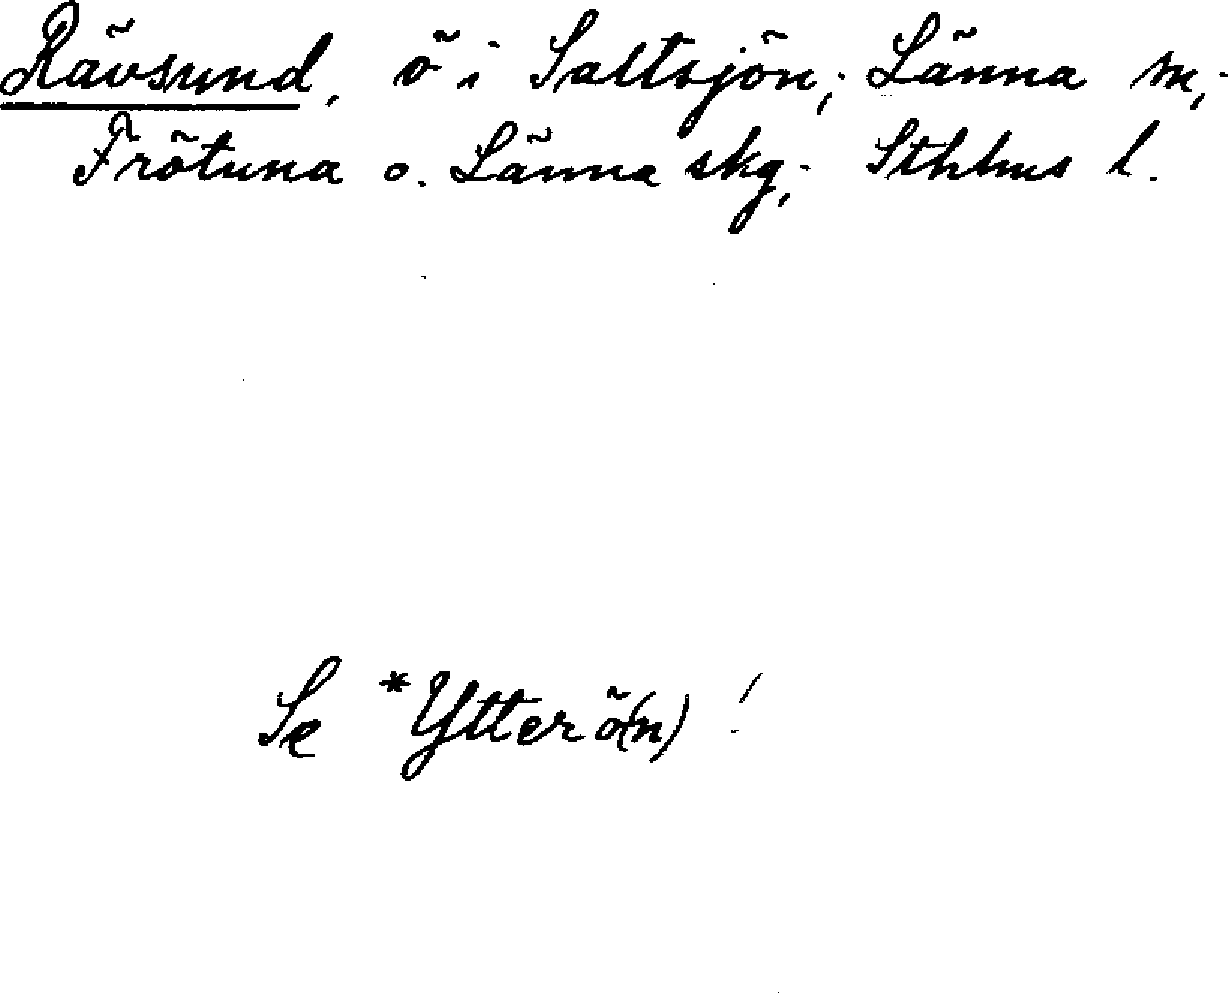 Rävsund, ö i Saltsjön; Länna sn;
Frötuna o. Länna skg; Sthlms l.
Se *Ytterö(n)!